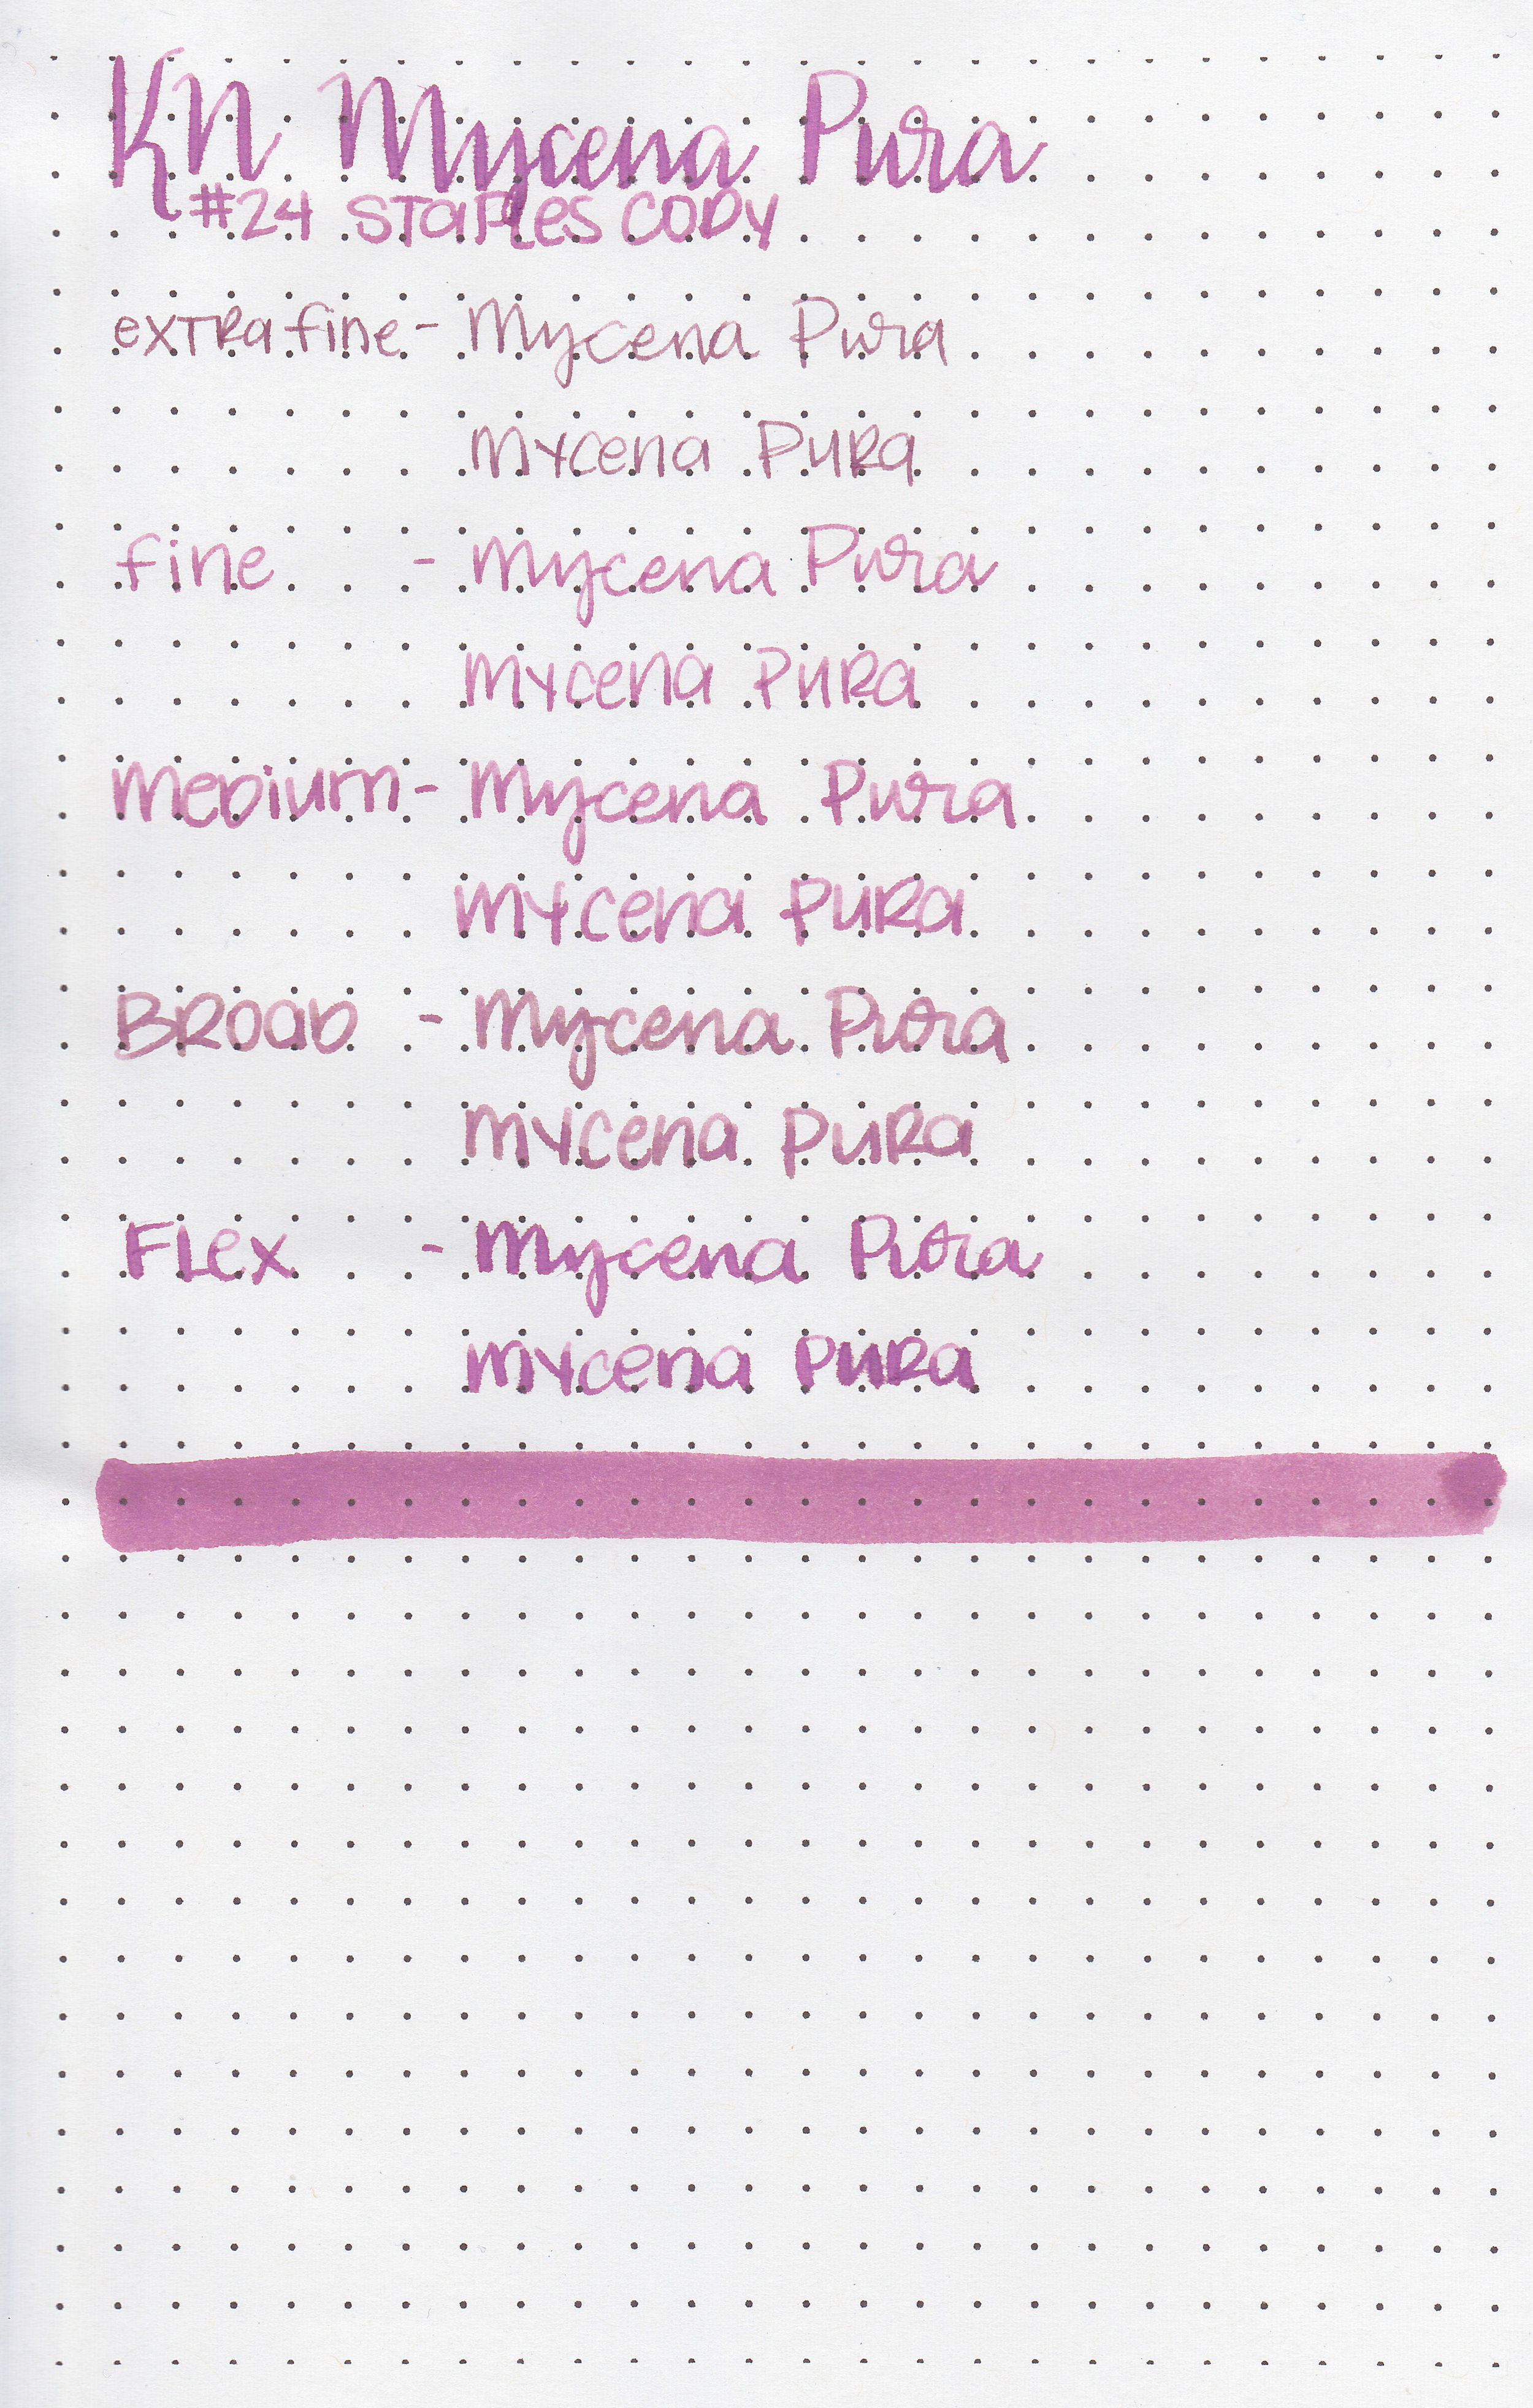 KN Mycena Pura
#24 STaPLes COPY
exTRa fine - Mycena Pura
Mycena PuRa
fine - Mycena Pura
Mycena PuRa
MeDium - Mycena Pura
Mycena PuRa
BRoaD - Mycena Pura
Mycena PuRa
FLex - Mycena Pura
Mycena PuRa